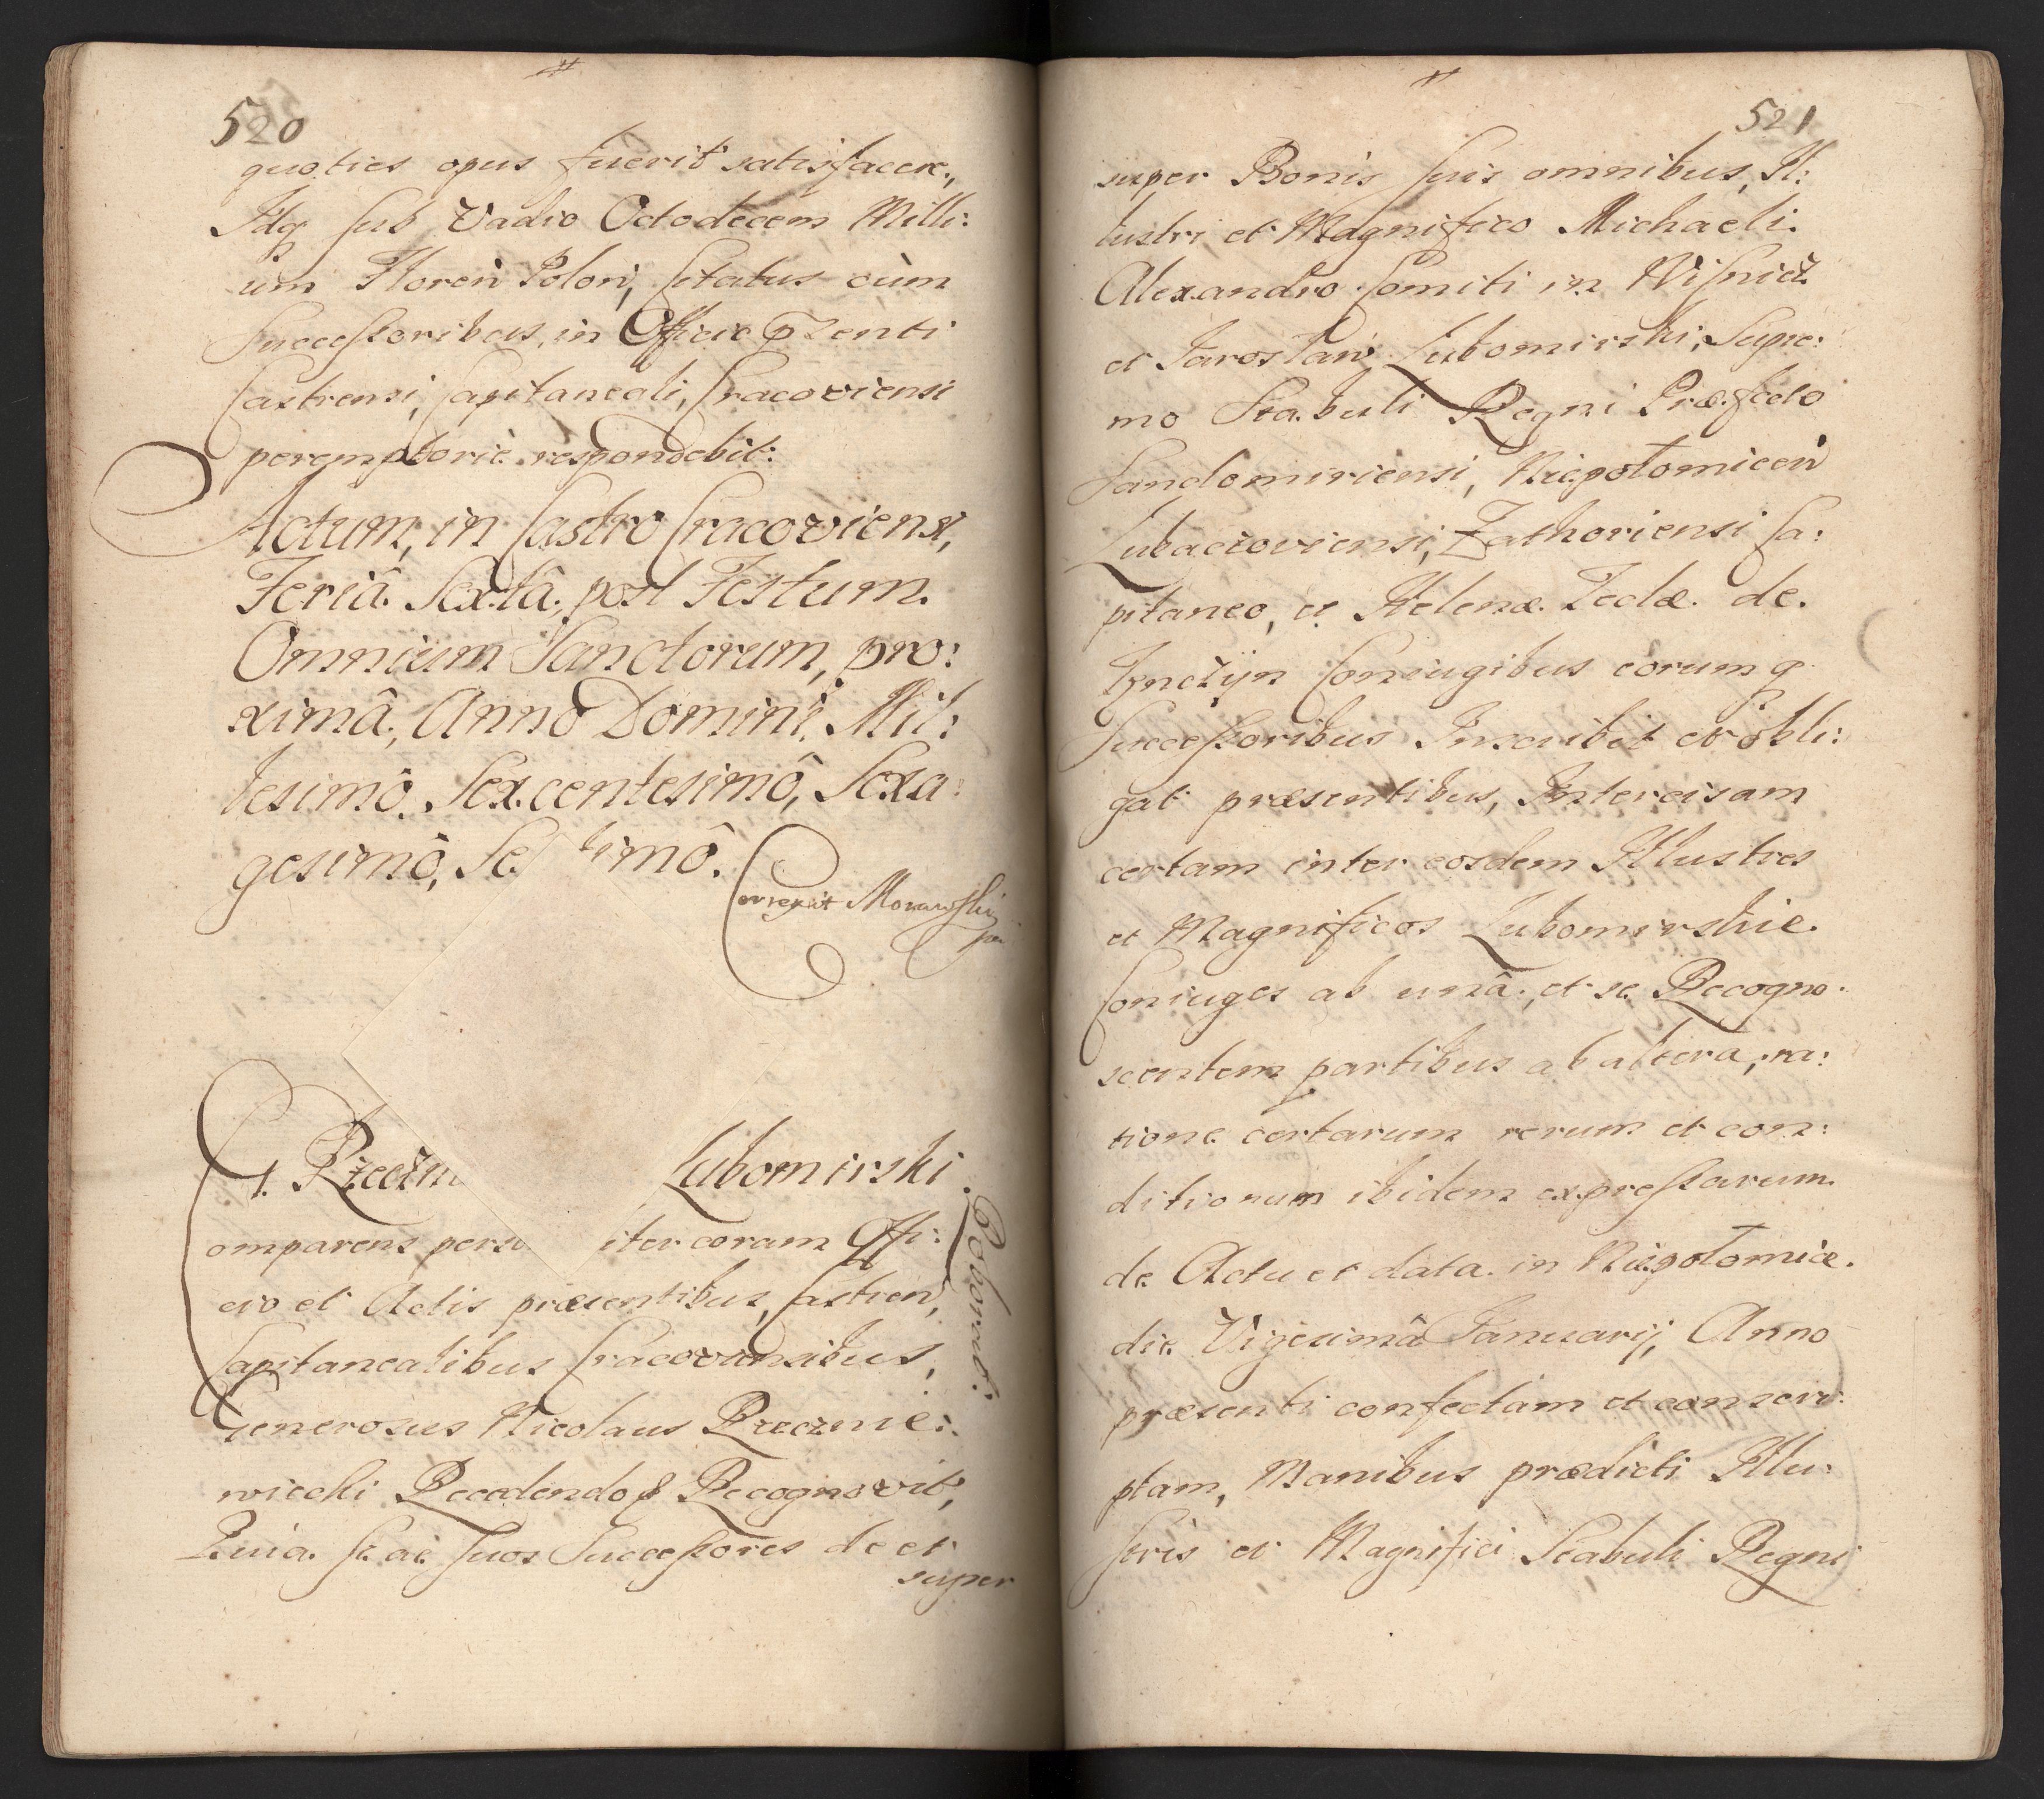 520
quoties opus fuerit satisfacere,
Idq sub Vadio Octodecem Milli:
um Floren Polon, Citatus cum
Successoribus, in Officio pzenti
Castrensi, Capitaneali, Cracoviensi
peremptorie respondebit:
Actum, in Castro Cracoviensi,
Feriâ Sextâ, post Festum
Omnium Sanctorum, pro:
ximâ, Anno Domini, Mil:
lesimô, Sexcentesimô, Sexa:
gesimô, Se timô.
Correxit Morawski
G. Rzeczn Lubomirski
omparens perso iter coram Offi:
cio et Actis præsentibus, Castren,
Capitanealibus Cracoviensibus,
Generosus Nicolaus Rzecznie:
wicki Recedendo & Recognovit,
Quia se ac suos Successores de et
super
Roborat:
521
super Bonis suis omnibus, Il:
lustri et Magnifico Michaeli
Alexandro Comiti in Wisnicz
et Jaroslaw Lubomirski, Supre:
mo Stabuli Regni Præfecto
Sandomiriensi, Niepołomicen
Lubaczoviensi, Zathoriensi Ca:
pitaneo, et Helenæ Teclæ de
Tynczijn Coniugibus eorumq
Successoribus Inscribit et obli:
gat præsentibus, Intercisam
certam inter eosdem Illustres
et Magnificos Lubomirskie
Coniuges ab unâ, et se Recogno:
scentem partibus ab altera, ra:
tione certarum rerum et con:
ditionum ibidem expressarum
de Actu et data in Niepołomice
die Vigesimâ Januarij, Anno
præsenti confectam et conscri:
ptam, Manibus prædicti Illu:
stris et Magnifici Stabuli Regni